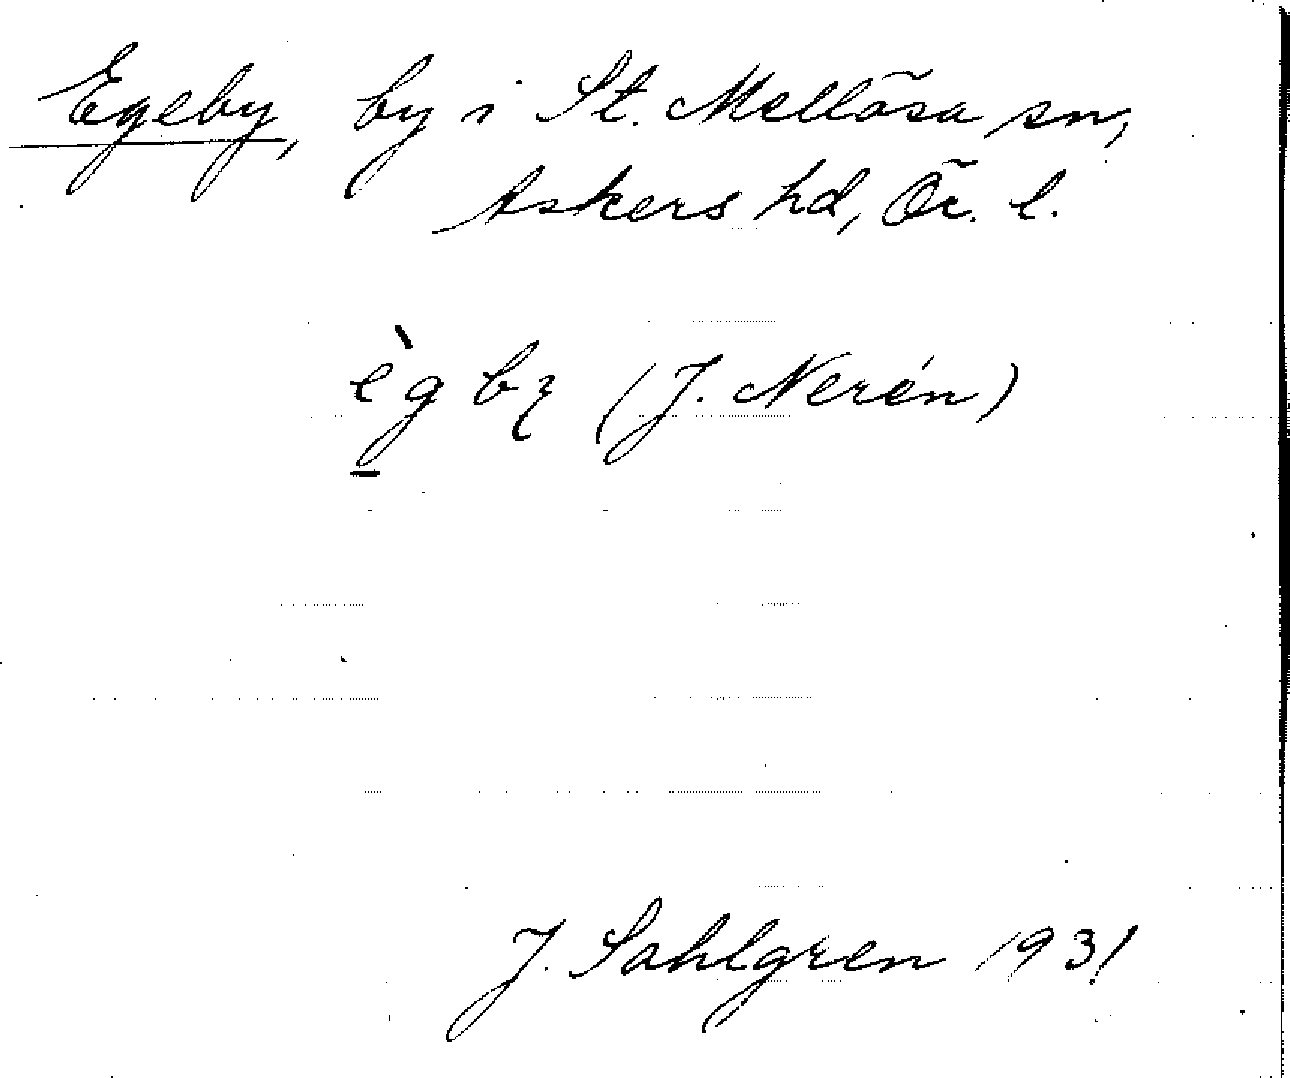 Egeby, by i St. Mellösa sn,
Askers hd, Ör. l.
ègbı̨ (J. Nerén)
J. Sahlgren 1931